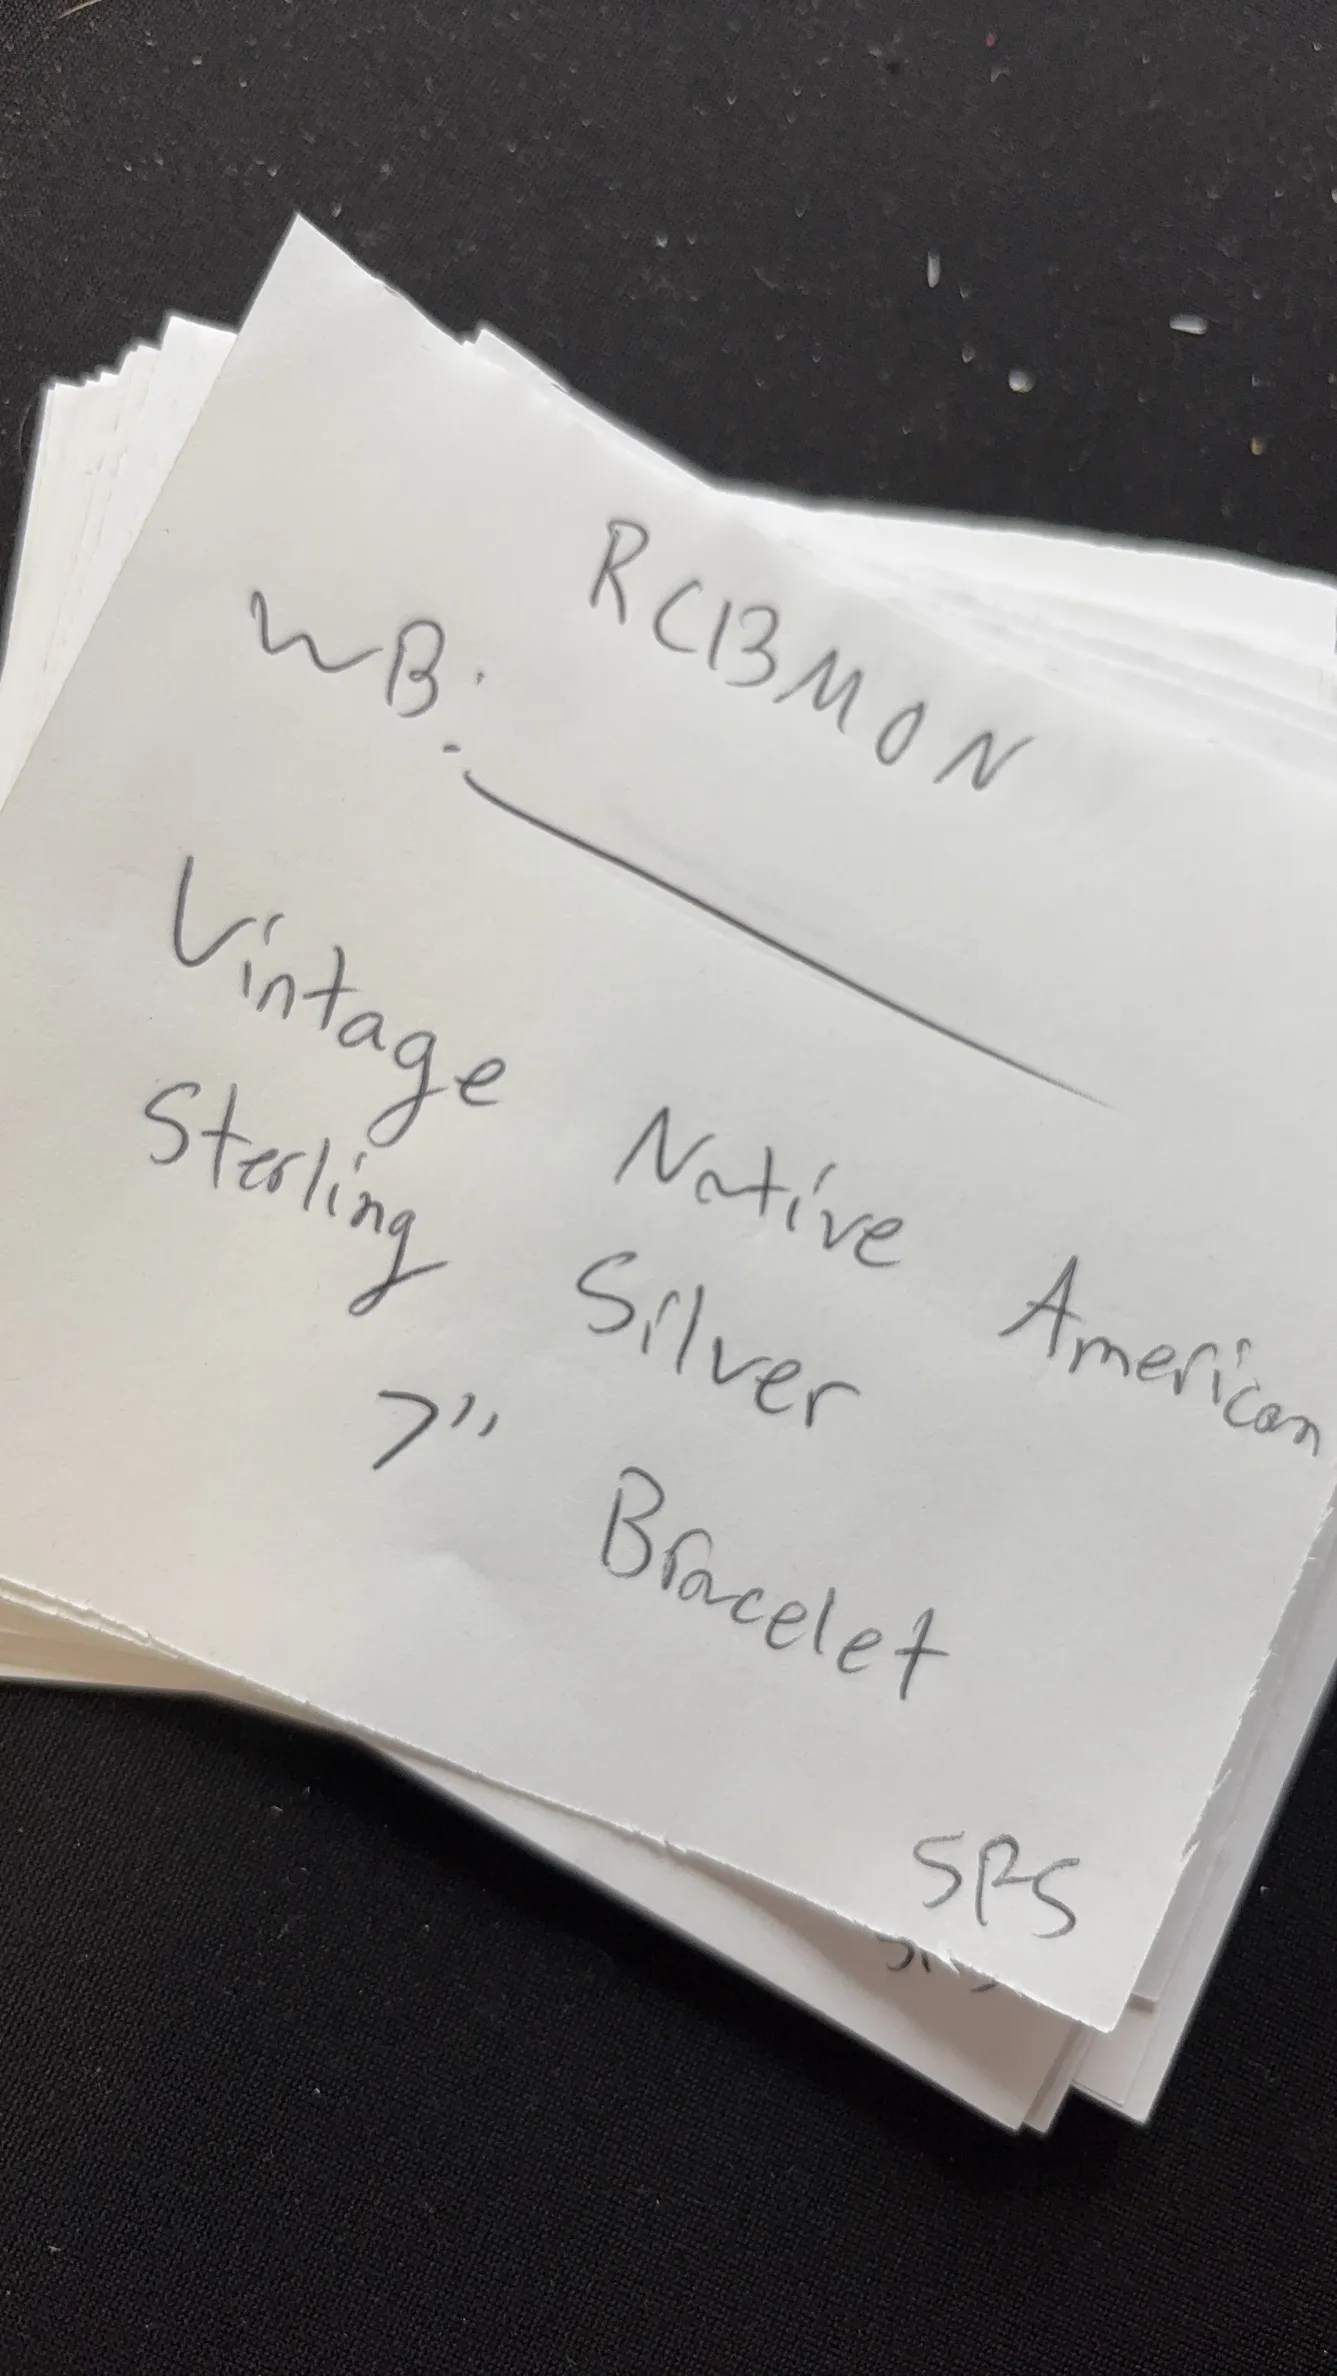 RCBMON
WB:
Vintage Native American
Sterling Silver
7" Bracelet
SPS